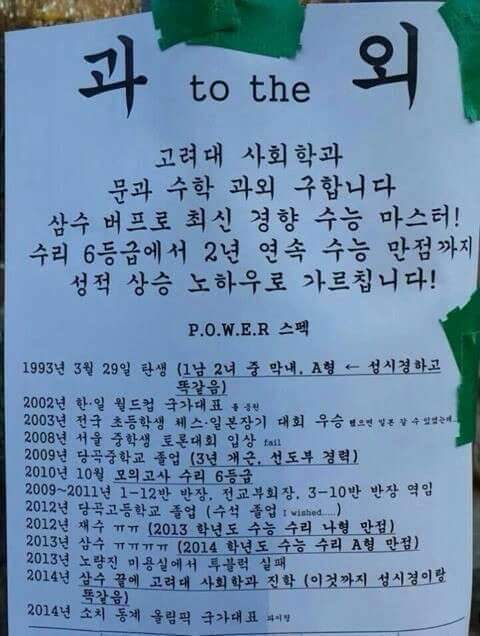 과 to the 외
고려대 사회학과
문과 수학 과외 구합니다
삼수 버프로 최신 경향 수능 마스터!
수리 6등급에서 2년 연속 수능 만점까지
성적 상승 노하우로 가르칩니다!
P.O.W.E.R 스펙
1993년 3월 29일 탄생 (1남 2녀 중 막내, A형 ← 성시경하고
똑같음)
2002년 한·일 월드컵 국가대표 를 응원
2003년 전국 초등학생 체스·일본장기 대회 우승 했으면 일본 갈 수 있었는데...
2008년 서울 중학생 토론대회 입상 fail
2009년 당곡중학교 졸업 (3년 개근, 선도부 경력)
2010년 10월 모의고사 수리 6등급
2009~2011년 1-12반 반장, 전교부회장, 3-10반 반장 역임
2012년 당곡고등학교 졸업 (수석 졸업 I wished.....)
2012년 재수 ㅠㅠ (2013 학년도 수능 수리 나형 만점)
2013년 삼수 ㅠㅠㅠㅠ (2014 학년도 수능 수리 A형 만점)
2013년 노량진 미용실에서 투블럭 실패
2014년 삼수 끝에 고려대 사회학과 진학 (이것까지 성시경이랑
똑같음)
2014년 소치 동계 올림픽 국가대표